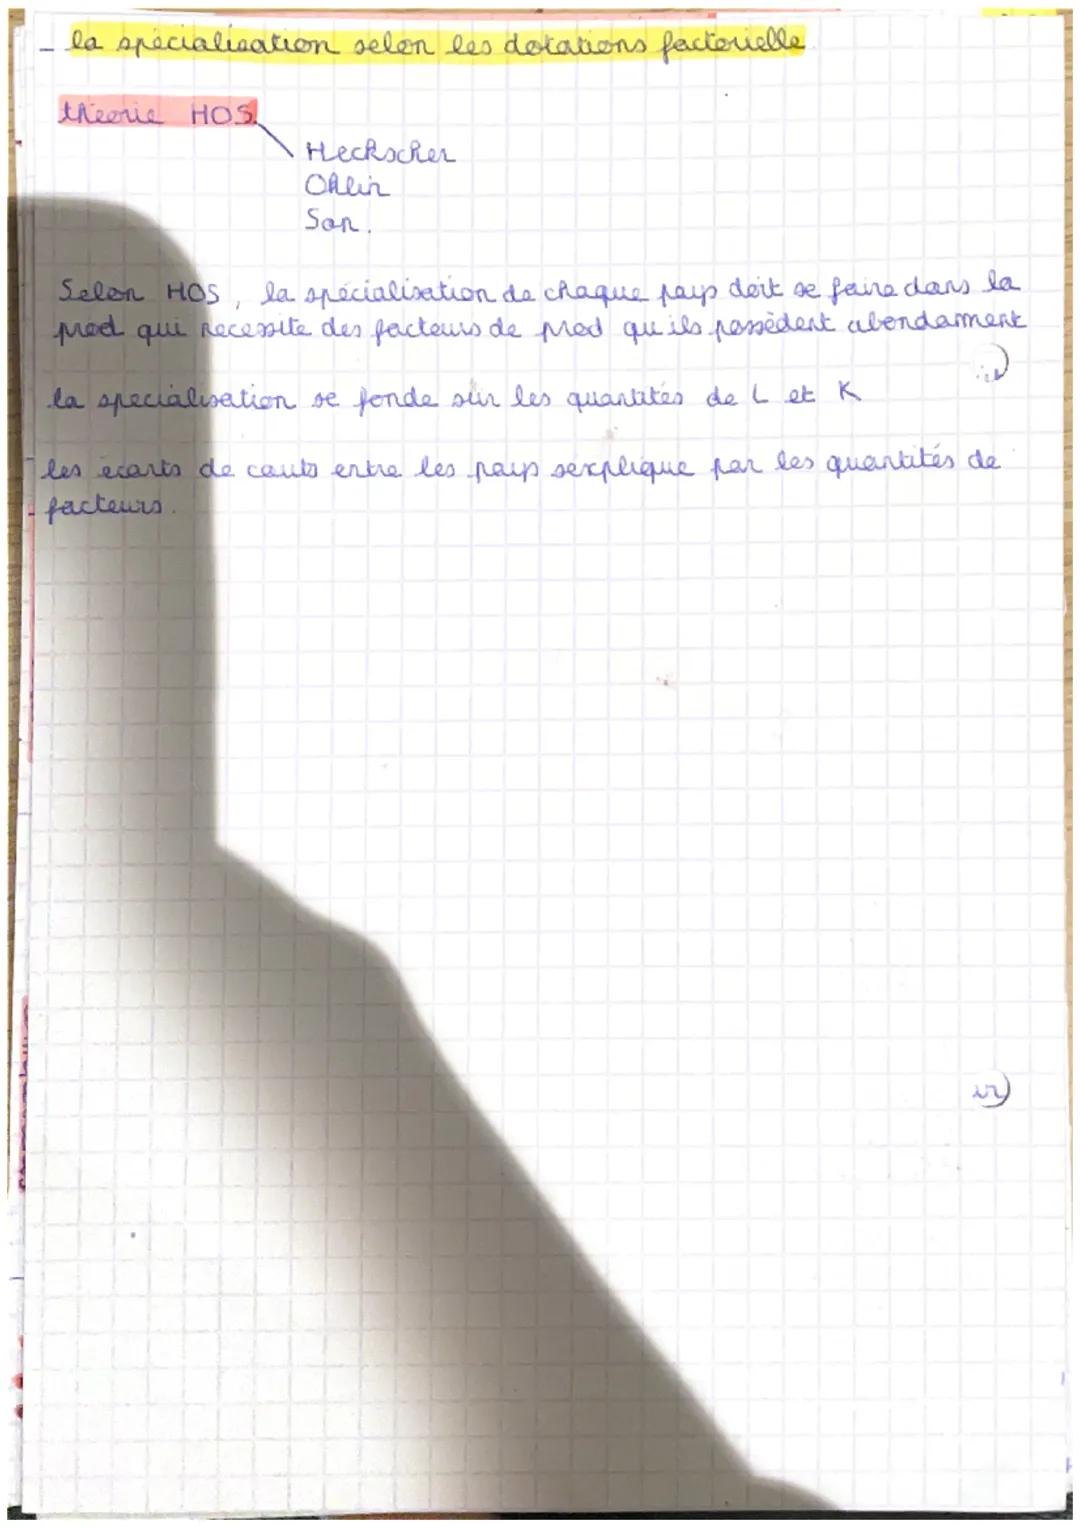 - la spécialisation selon les dotations factorielle
théorie HOS.
Heckscher
Ohlin
Sam.
Selon HOS, la spécialisation de chaque pays doit se faire dans la
prod qui necessite des facteurs de prod qu'ils possèdent abondamment
la spécialisation se fonde sur les quantités de L et K
les écarts de couts entre les pays s'explique par les quantités de
facteurs.